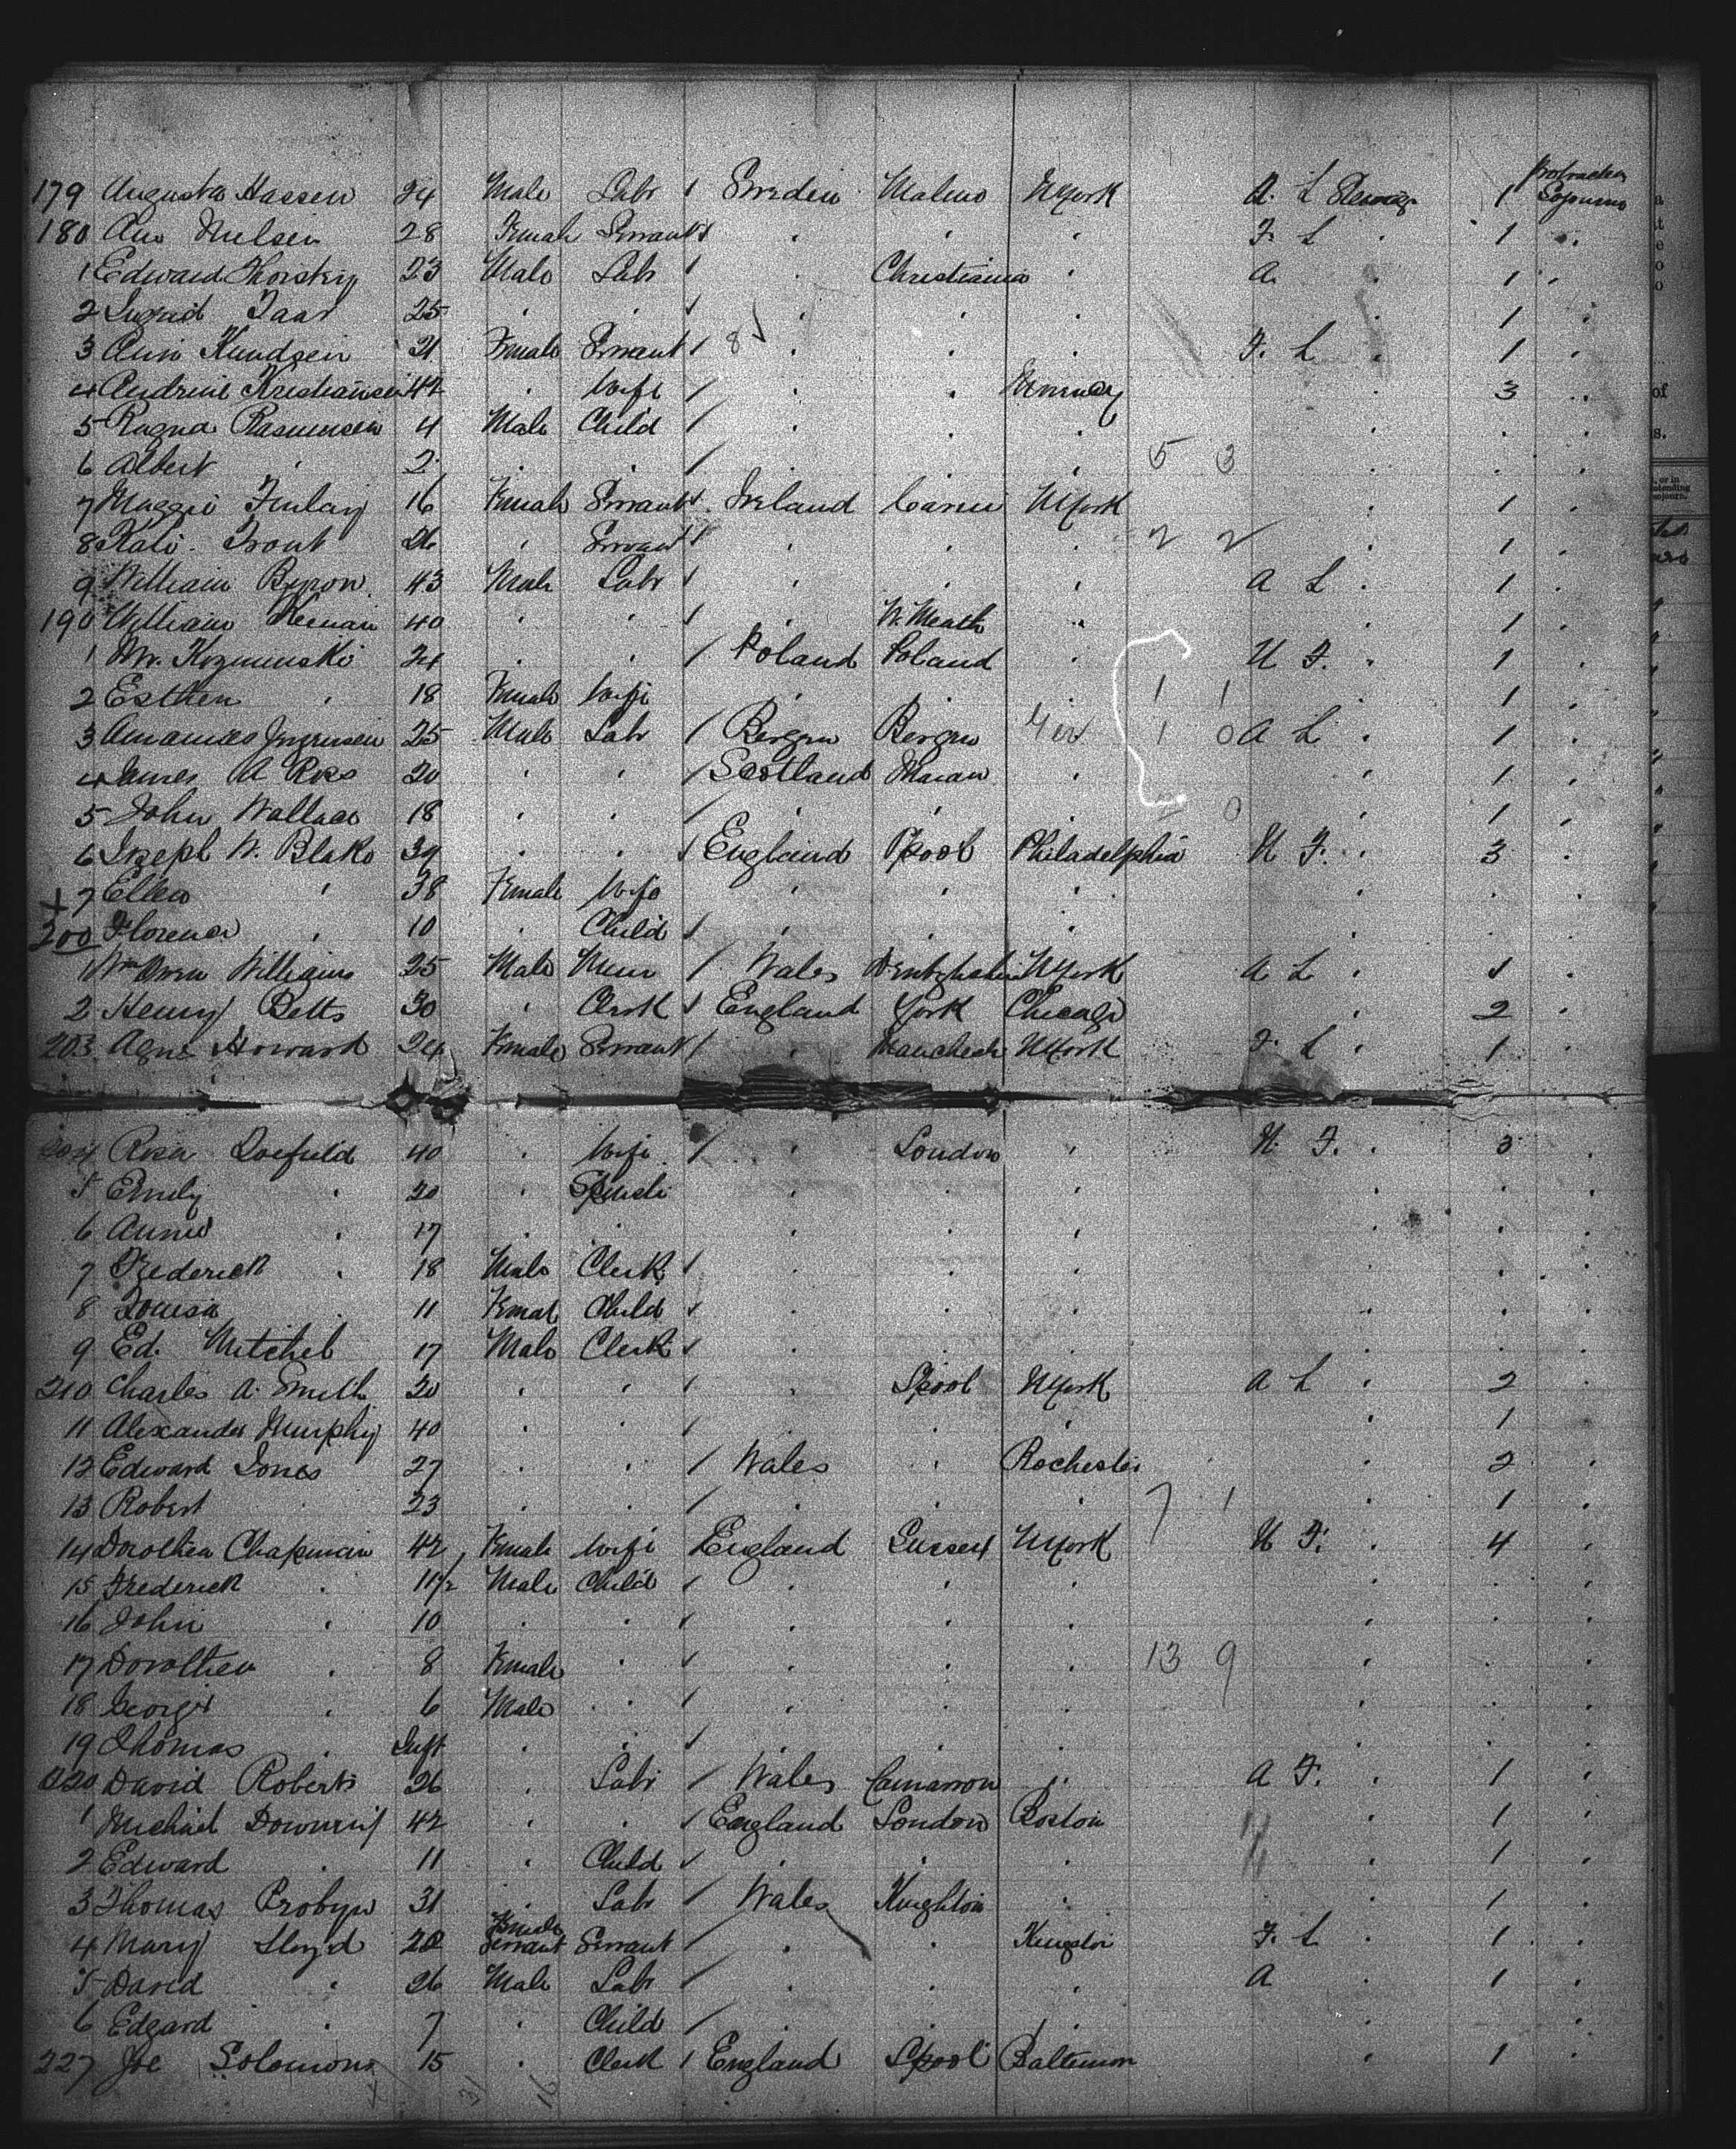 Protracted
179 Augusta Hassen 24 Male Labr 1 Sweden Malmo NYork A. L Steerage 1 Sojourn
180 Ann Nielsen 28 Female Servant F. L 1
1 Edward Thorsky 23 Male Labr Christiania A 1
2 Ingrid Taar 25 1
3 Ann Knudsen 21 Female Servant 8 F. L 1
4 Andrine Kristiansen 42 Wife Norway 3
5 Ragna Rasmussen 4 Male Child
6 Albert 2 5 3
7 Maggie Finlay 16 Female Servant Ireland NYork 1
8 Kate Trout 26 Servant 2 2 1
9 William Byron 43 Male Labr A L 1
190 William Keenan 40 W. Meath 1
1 Mr. Kozminski 24 Poland Poland U F. 1
2 Esther 18 Female Wife 1 1 1
3 25 Male Labr Bergen Bergen 1 0 A L 1
4 James A 20 Scotland 1
5 John Wallace 18 0 1
6 Joseph W. Blake 39 England Lpool Philadelphia U F. 3
x 7 Ellen 38 Female Wife
200 Florence 10 Child
1 Wm Owen Williams 25 Male Miner Wales Denbighshire NYork A L 1
2 Henry Betts 30 Clerk England York Chicago 2
203 Agnes Howard 24 Female Servant Manchester NYork F. L 1
204 Rosa Doefield 40 Wife London U. F. 3
5 Emily 20 Spinster
6 Annie 17
7 Frederick 18 Male Clerk
8 Louisa 11 Femal Child
9 Ed. Mitchel 17 Male Clerk
210 Charles A. Smith 20 Lpool NYork A L 2
11 Alexander Murphy 40 1
12 Edward Jones 27 Wales Rochester 2
13 Robert 23 7 1 1
14 Dorothea Chapman 42 Female Wife England Sussex NYork U F. 4
15 Frederick 11½ Male Child
16 John 10
17 Dorothea 8 Female 13 9
18 George 6 Male
19 Thomas Inft
220 David Roberts 26 Labr Wales Carnarvon A F. 1
1 Michael Downing 42 England London Boston 1
2 Edward 11 Child 1
3 Thomas Probyn 31 Labr Wales Knighton 1
4 Mary Lloyd 28 Female Servant Servant Kingston F. L 1
5 David 26 Male Labr A 1
6 Edgard 7 Child
227 Joe Solomons 15 Clerk England Lpool Baltimore 1
x 31 16